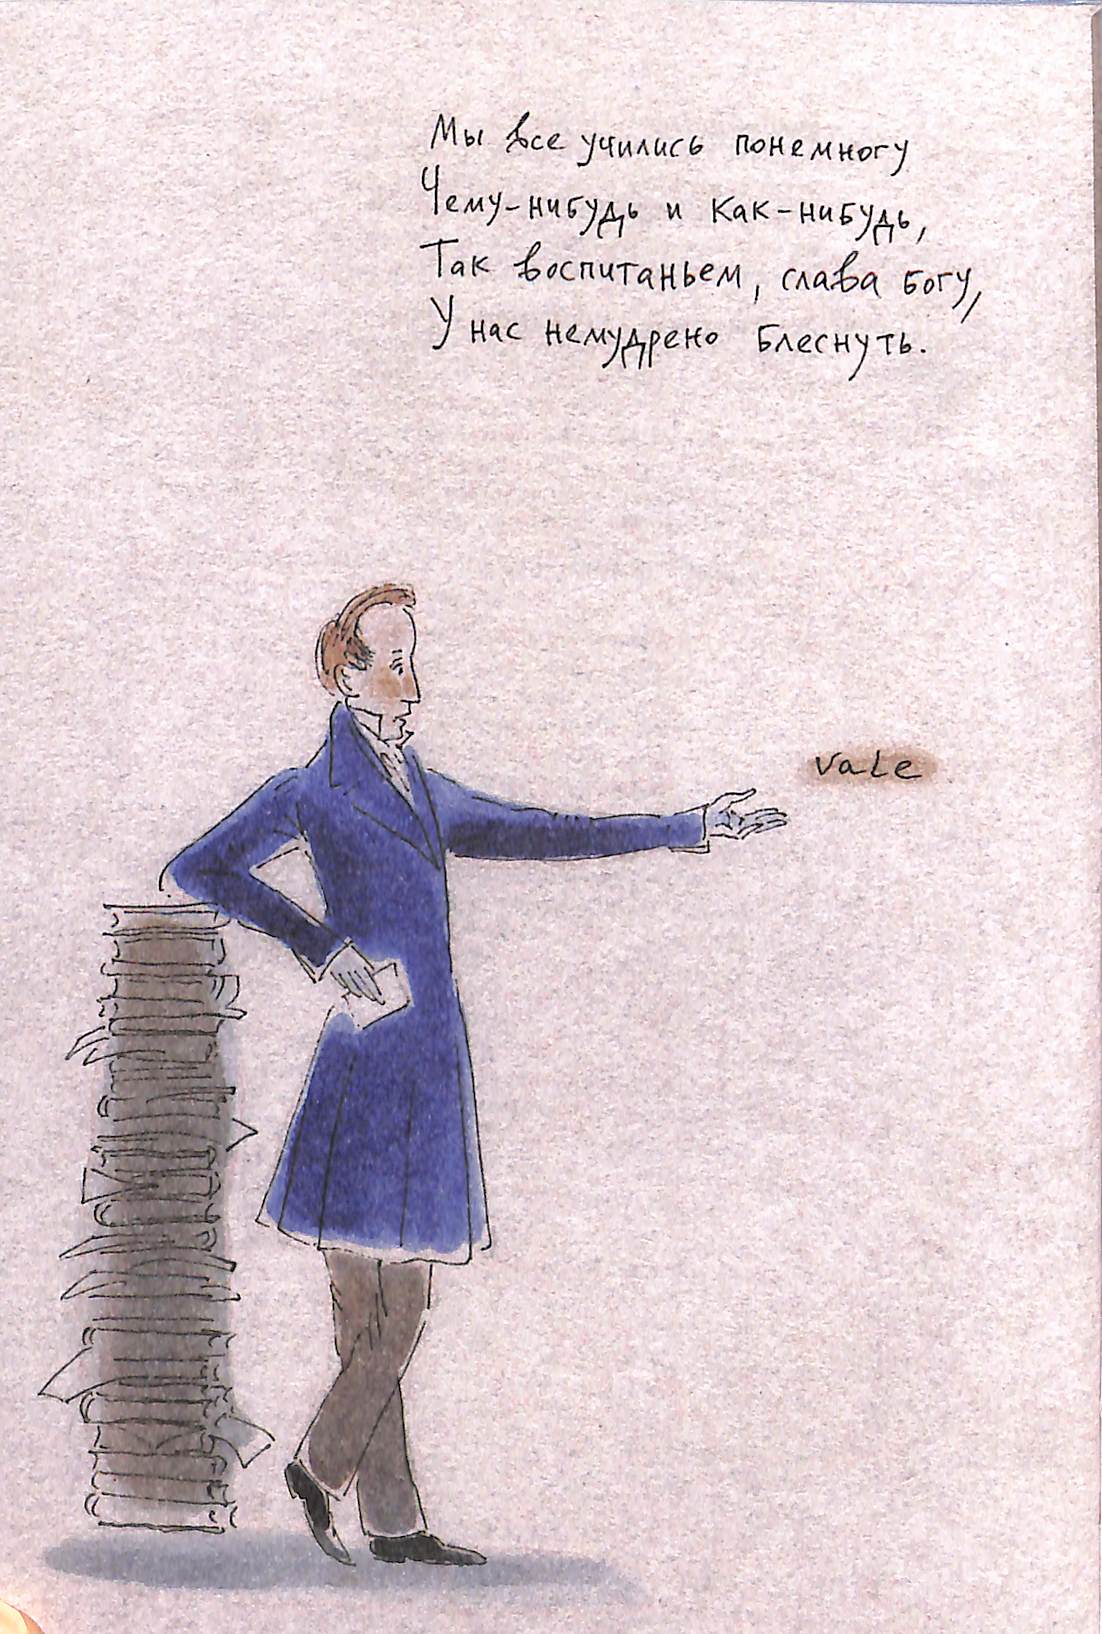 Мы все учились понемногу
Чему-нибудь и как-нибудь,
Так воспитаньем, слава богу,
У нас немудрено блеснуть.
vale